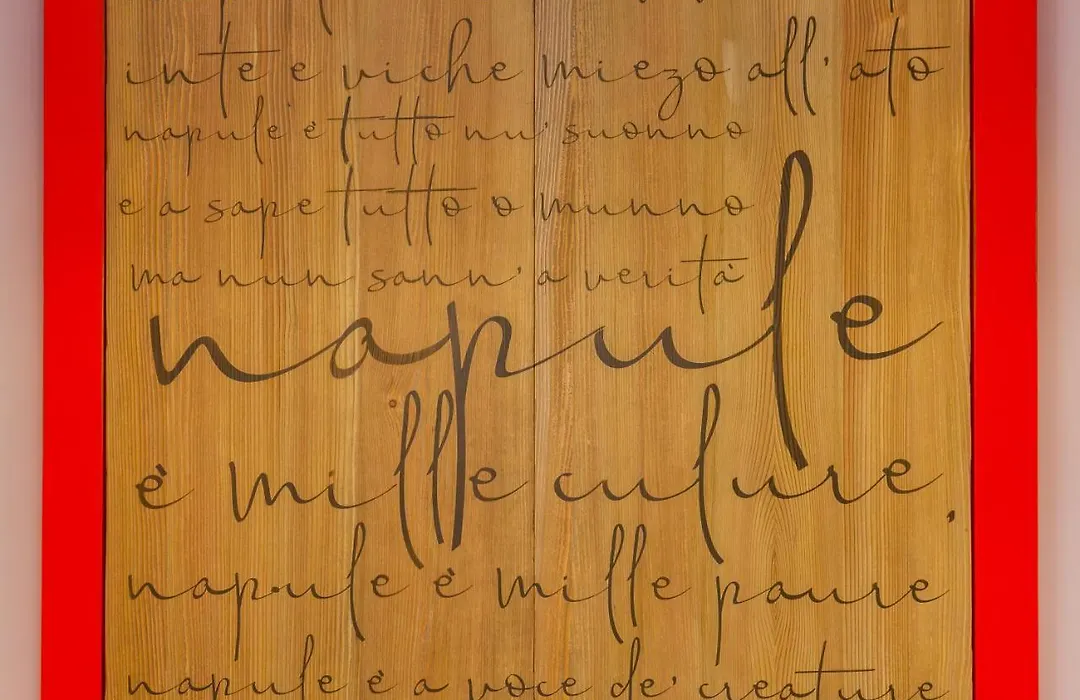 inte e viche miezo all' ato
napule è tutto nu' suonno
e a sape tutto o munno
ma nun sann' a verità
napule
è mille culure.
napule è mille paure
napule è a voce de' creature